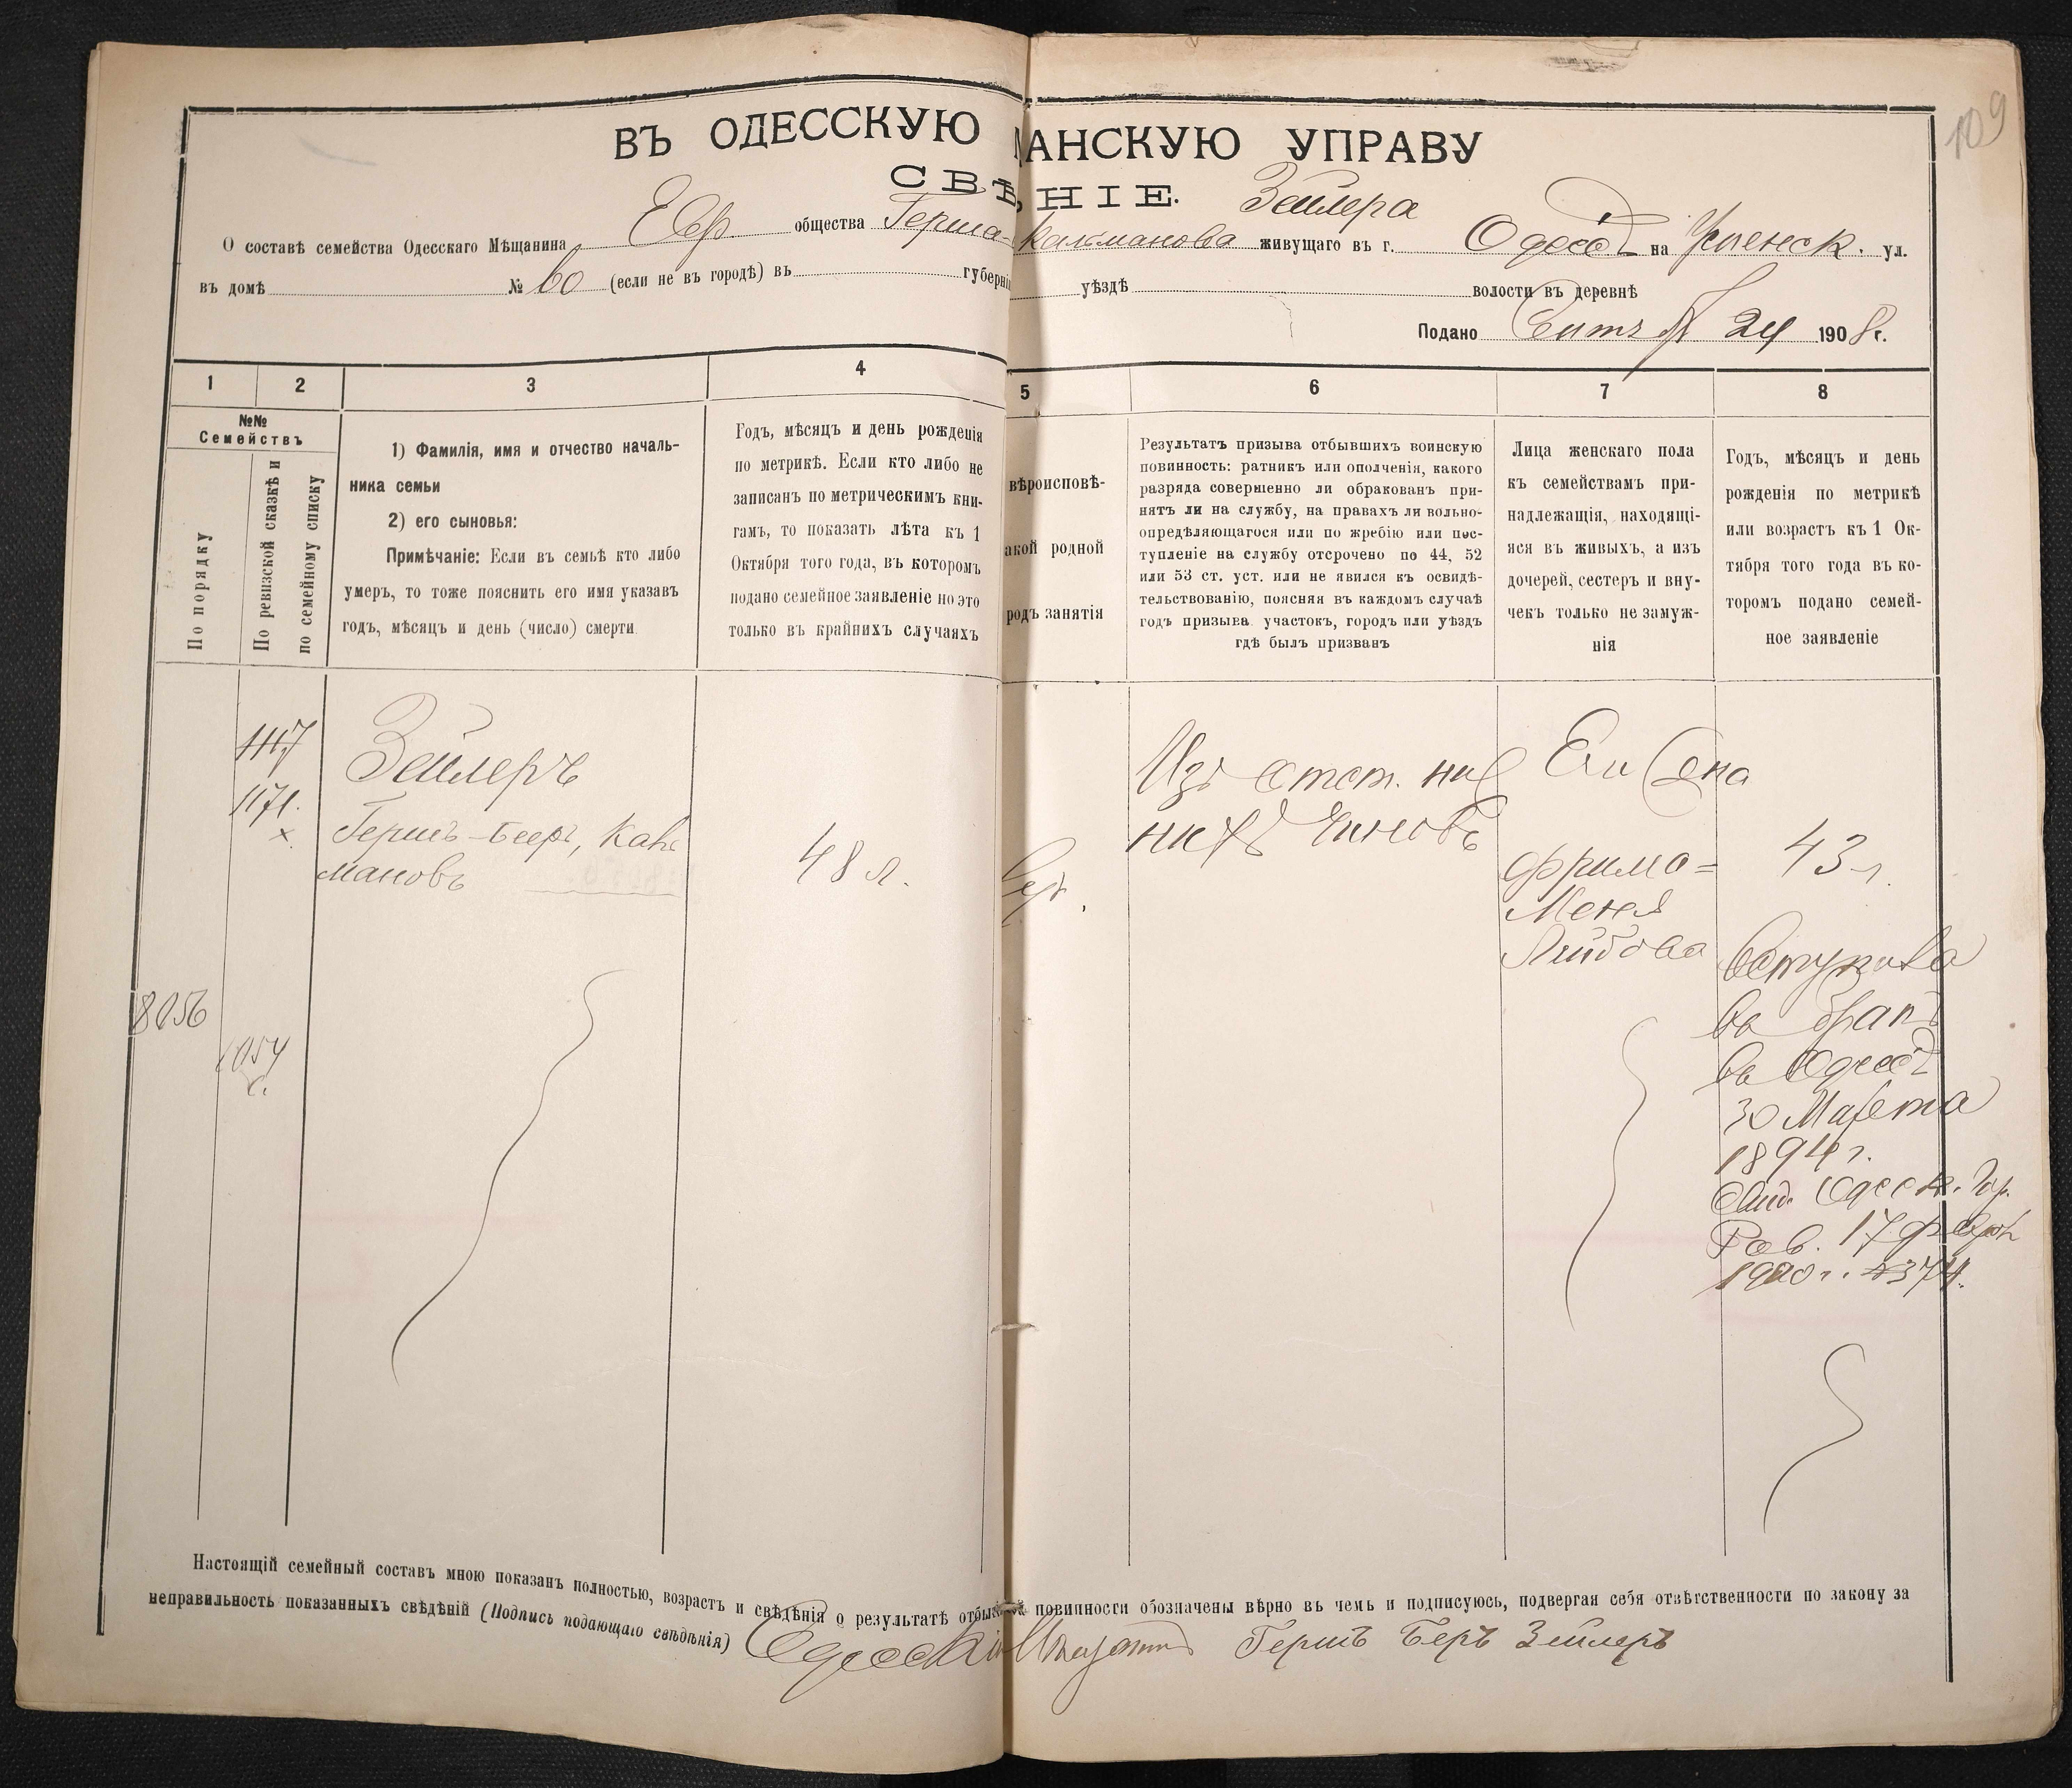 109
ВЪ ОДЕССКУЮ АНСКУЮ УПРАВУ
СВѢ НІЕ.
Зейлера
О составѣ семейства Одесскаго Мѣщанина Евр общества Герша- Кальманова живущаго въ г. Одессѣ на Успенск. ул.
въ домѣ № 60 (если не въ городѣ) въ губерніи уѣздѣ волости въ деревнѣ
Подано 24 1908 г.
1 2 3 4 5 6 7 8
№№
Семействъ
По порядку
По ревизской сказкѣ и
по семейному списку
1) Фамилія, имя и отчество началь-
ника семьи
2) его сыновья:
Примѣчаніе: Если въ семьѣ кто либо
умеръ, то тоже пояснить его имя указавъ
годъ, мѣсяцъ и день (число) смерти
Годъ, мѣсяцъ и день рожденія
по метрикѣ. Если кто либо не
записанъ по метрическимъ кни-
гамъ, то показать лѣта къ 1
Октября того года, въ которомъ
подано семейное заявленіе но это
только въ крайнихъ случаяхъ
вѣроисповѣ-
акой родной
родъ занятія
Результатъ призыва отбывшихъ воинскую
повинность: ратникъ или ополченія, какого
разряда совершенно ли обракованъ при-
нятъ ли на службу, на правахъ ли вольно-
опредѣляющагося или по жребію или пос-
тупленіе на службу отсрочено по 44, 52
или 53 ст. уст. или не явился къ освидѣ-
тельствованію, поясняя въ каждомъ случаѣ
годъ призыва участокъ, городъ или уѣздъ
гдѣ былъ призванъ
Лица женскаго пола
къ семействамъ при-
надлежащія, находящі-
яся въ живыхъ, а изъ
дочерей, сестеръ и вну-
чекъ только не замуж-
нія
Годъ, мѣсяцъ и день
рожденія по метрикѣ
или возрастъ къ 1 Ок-
тября того года въ ко-
торомъ подано семей-
ное заявленіе
1171.
x
Зейлеръ
Гершъ-Беръ, Каль
мановъ
48 л.
Евр.
Изъ отст.
нихъ Чиновъ
Его Жена
Фрима=
Меня
Лейбова
43 л.
Вступила
въ бракъ
въ Одессѣ
30 Марта
1894 г.
Одесск. Гор.
Рав. 17 февр
1900 г. № 374.
8056
1054
с.
Настоящій семейный составъ мною показанъ полностью, возрастъ и свѣдѣнія о результатѣ отбыв ой повинности обозначены вѣрно въ чемъ и подписуюсь, подвергая себя отвѣтственности по закону за
неправильность показанныхъ свѣдѣній (Подпись подающаго свѣдѣнія) Одесскій Мѣщанинъ Гершъ Беръ Зейлеръ